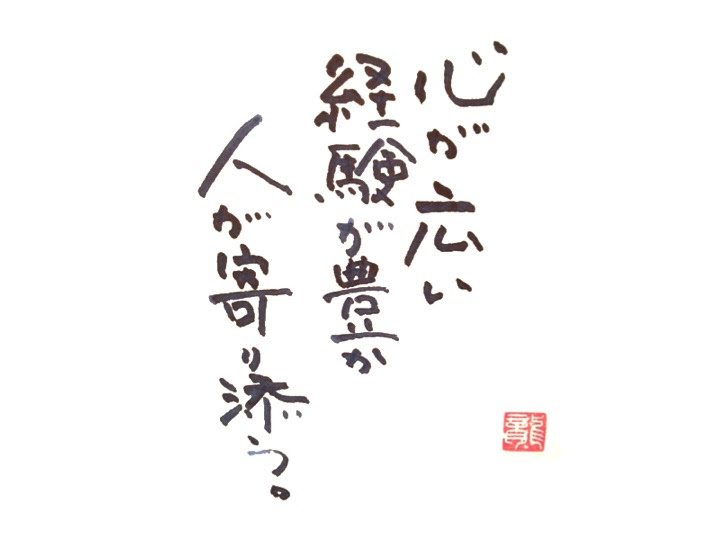 心が広い
経験が豊か
人が寄り添う。
龍